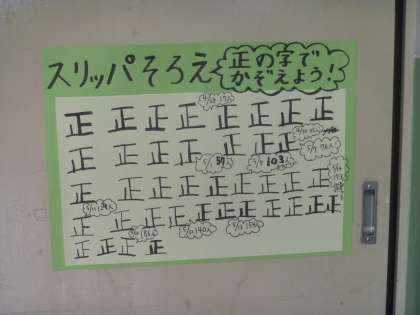 スリッパそろえ
正の字で
かぞえよう!
正 正 正 正 正 正 正 正
正 正 正 正 正 正 正
59
103
正 正 正 正 正 正 正 正 正
正 正 正 正 正 正 正 正 正 正 正
140人
正 正 正 正